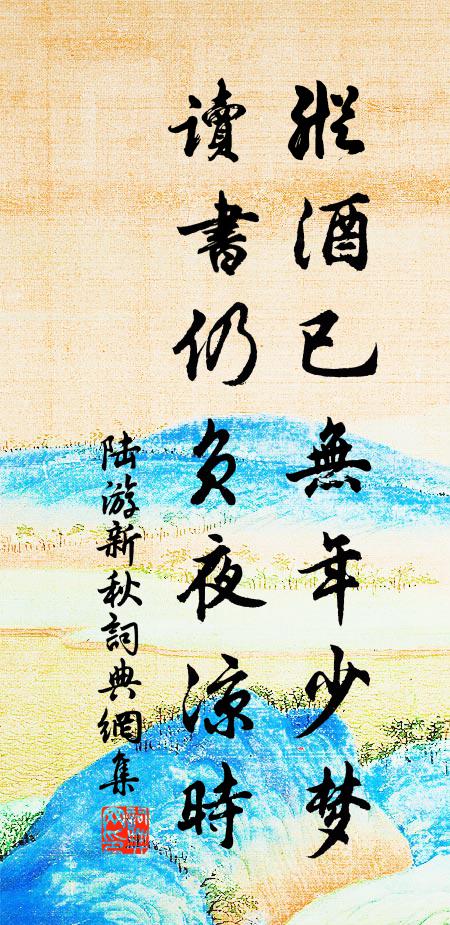 縱酒已無年少梦
讀書仍負夜涼時
陆游新秋詞典網集